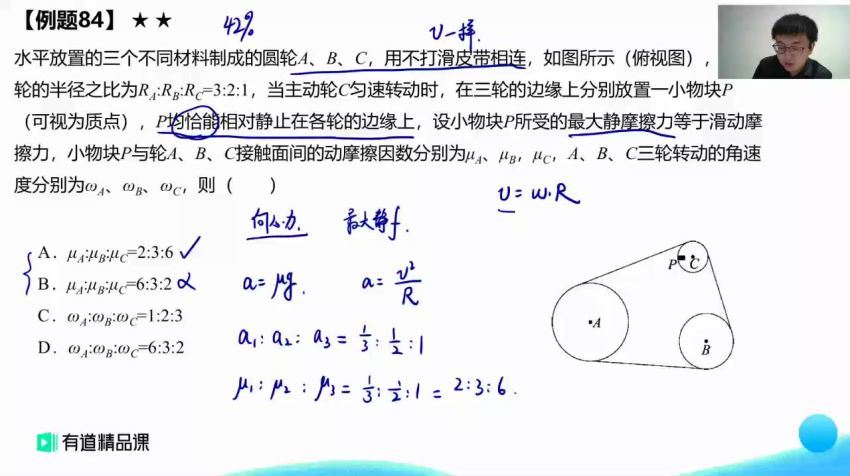 【例题84】★ ★
42%
v一样
水平放置的三个不同材料制成的圆轮A、B、C，用不打滑皮带相连，如图所示（俯视图），
轮的半径之比为R_A:R_B:R_C=3:2:1，当主动轮C匀速转动时，在三轮的边缘上分别放置一小物块P
（可视为质点），P均恰能相对静止在各轮的边缘上，设小物块P所受的最大静摩擦力等于滑动摩
擦力，小物块P与轮A、B、C接触面间的动摩擦因数分别为μ_A、μ_B，μ_C，A、B、C三轮转动的角速
度分别为ω_A、ω_B、ω_C，则（ ）
v=w.R
向心力. 最大静f.
A．μ_A:μ_B:μ_C=2:3:6 ✓
B．μ_A:μ_B:μ_C=6:3:2
C．ω_A:ω_B:ω_C=1:2:3
D．ω_A:ω_B:ω_C=6:3:2
a=μg. a=v²/R
a₁:a₂:a₃=1/3:1/2:1
μ₁:μ₂:μ₃=1/3:1/2:1=2:3:6.
P C
A
B
有道精品课